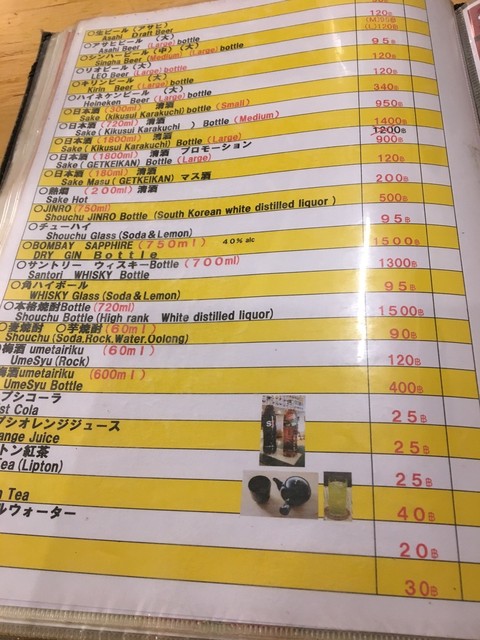 ○生ビール（アサヒ）
Asahi Draft Beer 120฿
○アサヒビール （大） (M)95฿
Asahi Beer (Large) bottle (L)120฿
○シンハービール（中）（大） 95฿
Singha Beer (Medium) (Large) bottle 120฿
○リオビール （大）
LEO Beer (Large) bottle 120฿
○キリンビール （大）
Kirin Beer (Large) bottle 120฿
○ハイネケンビール （大）
Heineken Beer (Large) bottle
○日本酒 (300ml) 清酒 340฿
Sake (kikusui Karakuchi) bottle (Small)
○日本酒 (720ml) 清酒 950฿
Sake (Kikusui Karakuchi ) Bottle (Medium)
○日本酒 (1800ml) 清酒 1400฿
Sake ( Kikusui Karakuchi) Bottle (Large) 1200฿
○日本酒 (1800ml) 清酒 プロモーション 900฿
Sake ( GETKEIKAN) Bottle (Large)
○日本酒 (180ml) 清酒 120฿
Sake Masu ( GETKEIKAN) マス酒
○熱燗 （200ml） 清酒 200฿
Sake Hot
○JINRO (750ml) 500฿
Shouchu JINRO Bottle (South Korean white distilled liquor )
○チューハイ 95฿
Shouchu Glass (Soda & Lemon)
○BOMBAY SAPPHIRE (750ml) 40% alc 1500฿
DRY GIN Bottle
○サントリー ウィスキーBottle (700ml) 1300฿
Santori WHISKY Bottle
○角ハイボール 95฿
WHISKY Glass (Soda & Lemon)
○本格焼酎Bottle (720ml) 1500฿
Shouchu Bottle (High rank White distilled liquor)
○麦焼酎 ○芋焼酎 (60ml) 90฿
Shouchu (Soda,Rock,Water,Oolong)
梅酒 umetairiku (60ml) 120฿
UmeSyu (Rock)
梅酒umetairiku (600ml) 400฿
UmeSyu Bottle
プシコーラ 25฿
st Cola
プシオレンジジュース 25฿
ange Juice
トン紅茶 25฿
ea (Lipton)
n Tea 40฿
ルウォーター
20฿
30฿